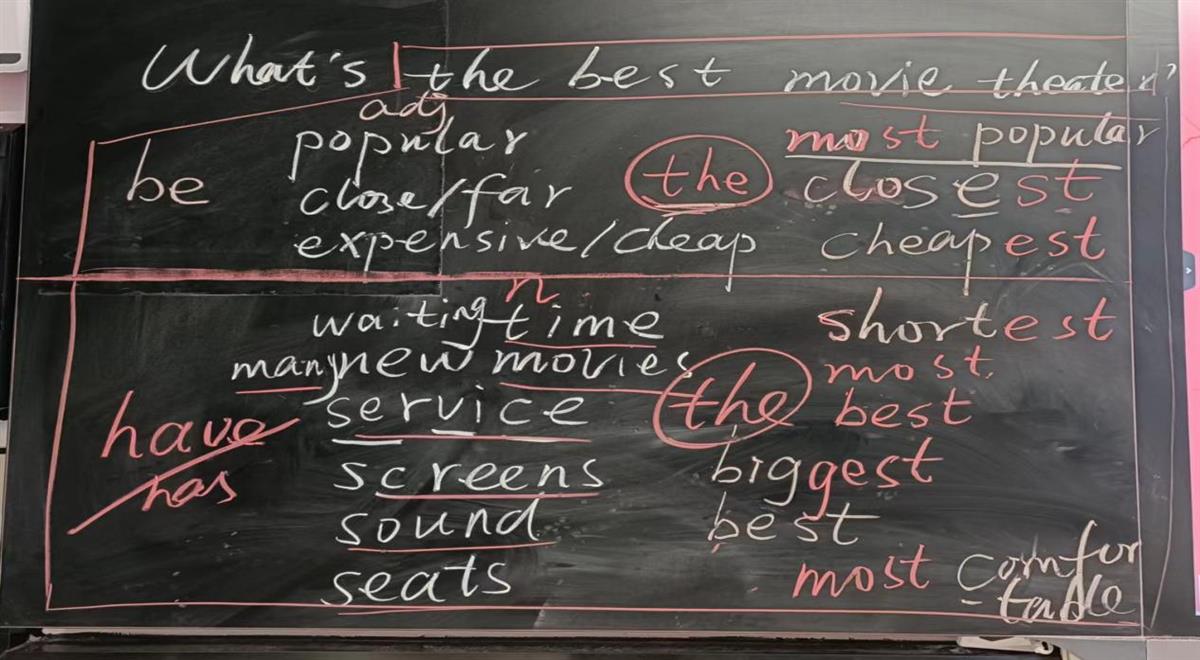 What's the best movie theater?
adj
popular most popular
be close/far the closest
expensive/cheap cheapest
n
waiting time shortest
many new movies the most.
have/has service best
screens biggest
sound best
seats most comfortable